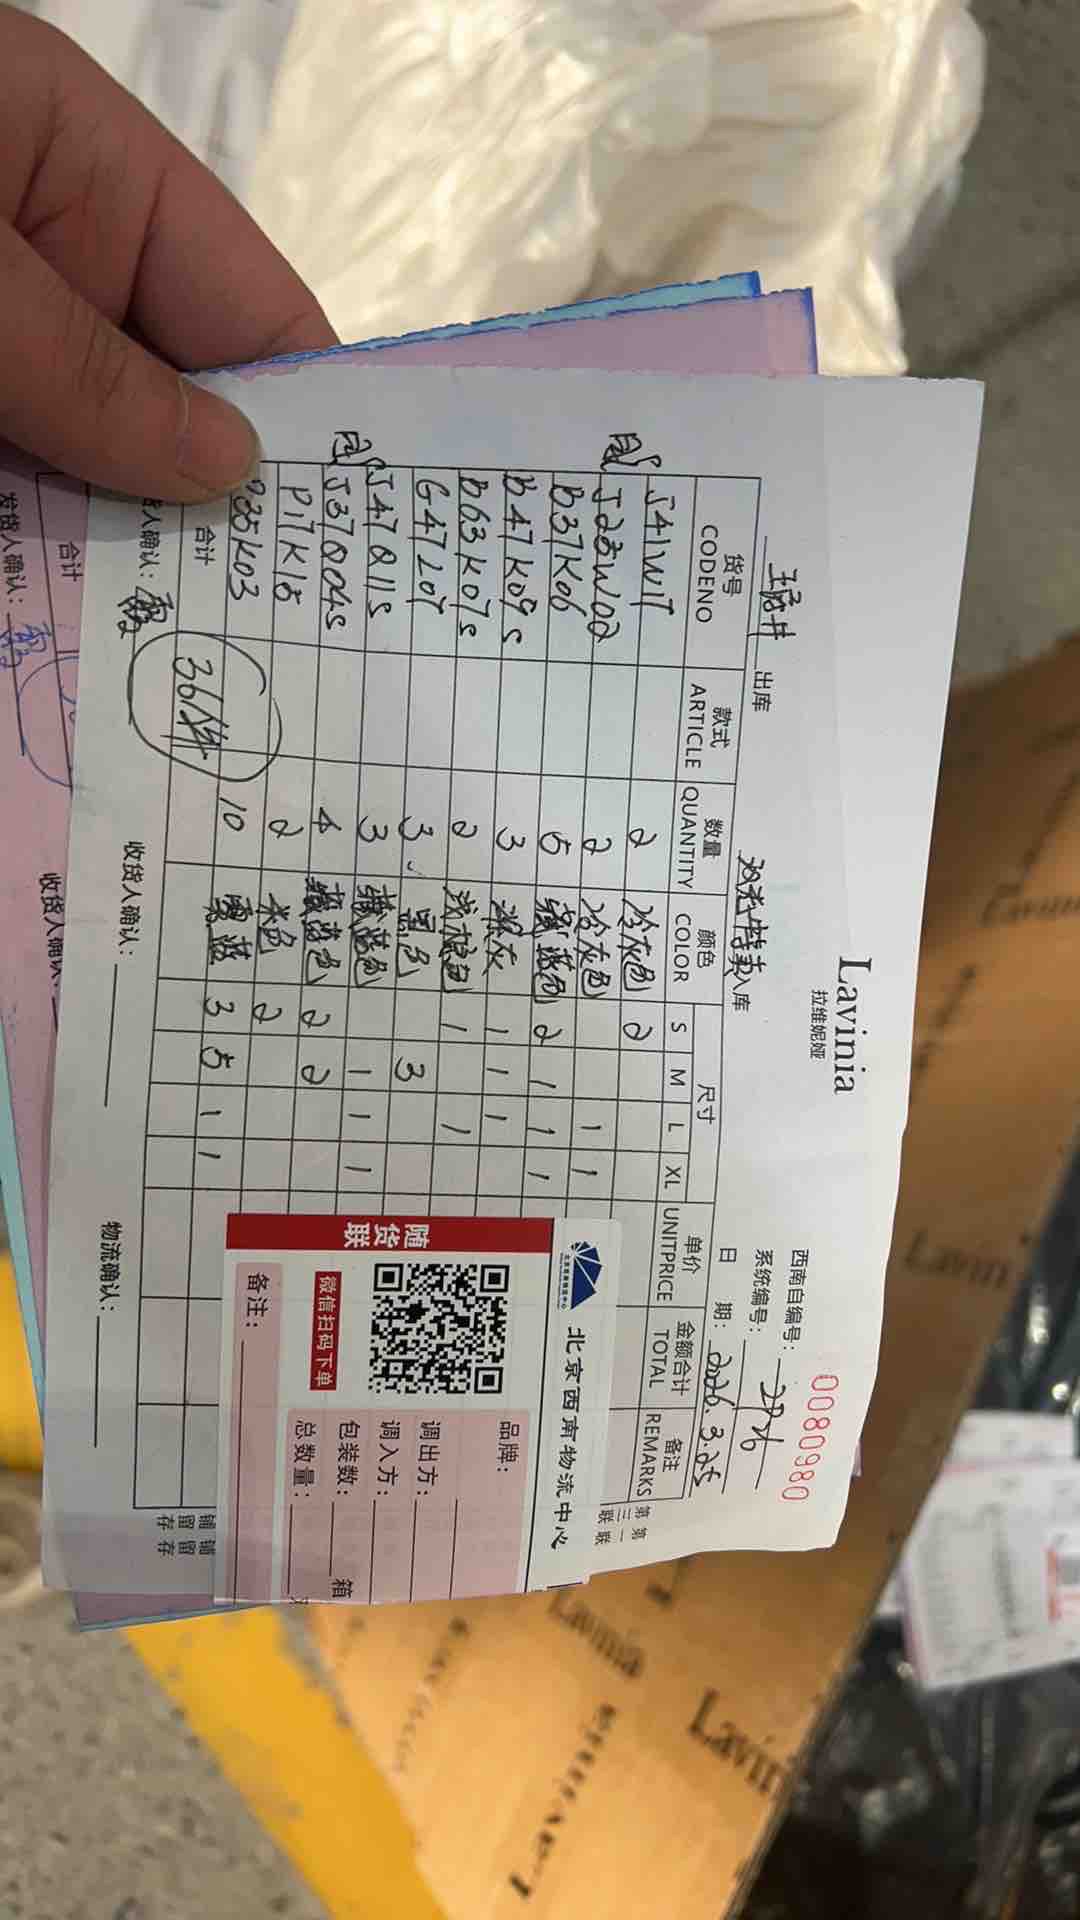 Lavinia
拉维妮娅
0080980
西南自编号:
系统编号: 2876
出库
入库
日 期: 2026.3.25
货号 款式 数量 颜色 尺寸 单价 金额合计 备注
CODENO ARTICLE QUANTITY COLOR S M L XL UNITPRICE TOTAL REMARKS
J41W17 2 冷灰色 2
J28W02 2 冷灰色 1 1
B37K06 5 藏蓝色 2 1 1 1
B47K09S 3 深灰 1 1 1
B63K07S 2 1 1
G47L07 3 黑色 3
J47Q11S 3 藏蓝色 1 1 1
J37Q04S 4 藏蓝色 2 2
P17K15 2 米色 2
35K03 10 雾蓝 3 5 1 1
合计 36件
货人确认:
收货人确认:
物流确认:
第一联
第三联
铺留存
铺留存
北京西南物流中心
随货联
微信扫码下单
品牌:
调出方:
调入方:
包装数: 箱
总数量:
备注:
合计
发货人确认:
收货人确认:
Lavinia
Lavinia